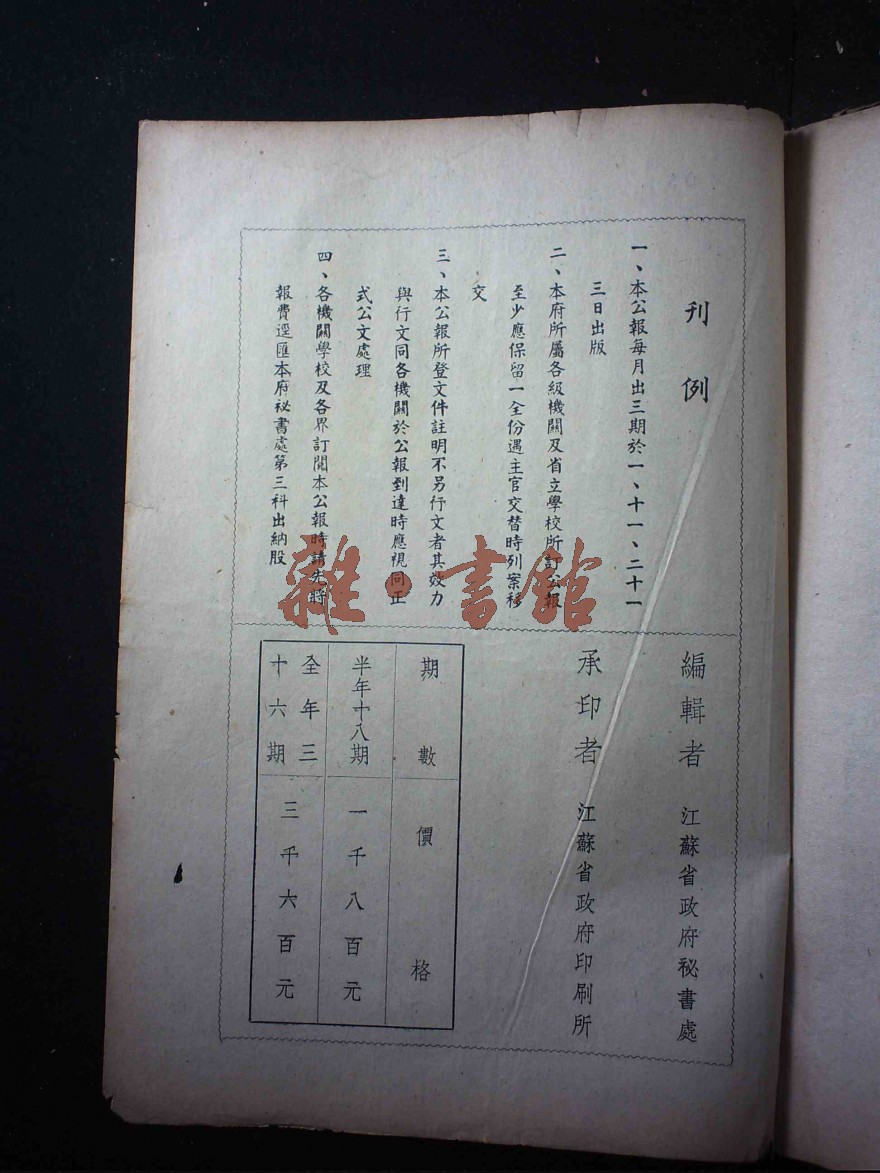 刊例
一、本公報每月出三期於一、十一、二十一
三日出版
二、本府所屬各級機關及省立學校所訂公報
至少應保留一全份遇主官交替時列案移
交
三、本公報所登文件註明不另行文者其效力
與行文同各機關於公報到達時應視同正
式公文處理
四、各機關學校及各界訂閱本公報時請先將
報費逕匯本府祕書處第三科出納股
編輯者 江蘇省政府祕書處
承印者 江蘇省政府印刷所
期數 價格
半年十八期 一千八百元
全年三
十六期
三千六百元
雜·書館